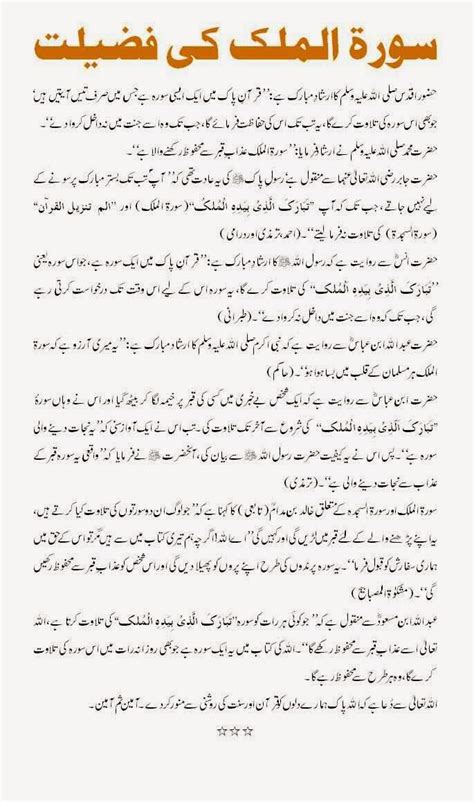 سورۃ الملک کی فضیلت
حضور اقدس صلی اللہ علیہ وسلم کا ارشاد مبارک ہے: ’’قرآن پاک میں ایک ایسی سورہ ہے جس میں صرف تیس آیتیں ہیں‘
جو بھی اس سورہ کی تلاوت کرے گا، یہ تب تک اس کی حفاظت فرمائے گا، جب تک وہ اسے جنت میں نہ داخل کروا دے‘‘۔
حضرت محمد صلی اللہ علیہ وسلم نے ارشاد فرمایا: ’’سورۃ الملک عذاب قبر سے محفوظ رکھنے والا ہے‘‘۔
حضرت جابر رضی اللہ تعالیٰ عنہما سے منقول ہے‘ رسول پاک ﷺ کی یہ عادت تھی کہ ’’آپؐ تب تک بستر مبارک پر سونے کے
لیے نہیں جاتے، جب تک کہ آپ ’’تَبَارَکَ الَّذِیْ بِیَدِہِ الْمُلْک‘‘ (سورۃ الملک) اور ’’الم تنزیل القرآن‘‘
(سورۃ السجدۃ) کی تلاوت نہ فرما لیتے‘‘۔ (احمد، ترمذی اور دارمی)
حضرت انسؓ سے روایت ہے کہ رسول اللہ ﷺ کا ارشاد مبارک ہے: ’’قرآن پاک میں ایک سورہ ہے، جو اس سورہ یعنی
’’تَبَارَکَ الَّذِیْ بِیَدِہِ الْمُلْک‘‘ کی تلاوت کرے گا، یہ سورہ اس کے لیے اس وقت تک درخواست کرتی رہے
گی، جب تک کہ وہ اسے جنت میں داخل نہ کروا دے‘‘۔ (طبرانی)
حضرت عبداللہ ابن عباسؓ سے روایت ہے کہ نبی اکرم صلی اللہ علیہ وسلم کا ارشاد مبارک ہے: ’’یہ میری آرزو ہے کہ سورۃ
الملک ہر مسلمان کے قلب میں بسا ہوا ہو‘‘۔ (حاکم)
حضرت ابن عباسؓ سے روایت ہے کہ ایک شخص بے خبری میں کسی کی قبر پر خیمہ لگا کر بیٹھ گیا اور اس نے وہاں سورۂ
’’تَبَارَکَ الَّذِیْ بِیَدِہِ الْمُلْک‘‘ کی شروع سے آخر تک تلاوت کی۔ تب اس نے ایک آواز سنی کہ ’’یہ نجات دینے والی
سورہ ہے‘‘۔ پس اس نے یہ کیفیت حضرت رسول اللہ ﷺ سے بیان کی، آنحضرت ﷺ نے فرمایا کہ ’’واقعی یہ سورہ قبر کے
عذاب سے نجات دینے والی ہے‘‘۔ (ترمذی)
سورۃ الملک اور سورۃ السجدہ کے متعلق خالد بن مدامؒ (تابعی) کا کہنا ہے کہ ’’جو لوگ ان دو سورتوں کی تلاوت کیا کرتے ہیں،
یہ اپنے پڑھنے والے کے لیے قبر میں لڑیں گی اور کہیں گی‘‘ اے اللہ! اگرچہ ہم تیری کتاب میں سے ہیں‘ مگر تو اس کے حق میں
ہماری سفارش کو قبول فرما‘‘۔ یہ سورہ پرندوں کی طرح اپنے پروں کو پھیلا دیں گی اور اس شخص کو عذاب قبر سے محفوظ رکھیں
گی‘‘۔ (مشکوٰۃ المصابیح)
عبداللہ ابن مسعودؓ سے منقول ہے کہ ’’جو کوئی ہر رات کو سورہ ’’تَبَارَکَ الَّذِیْ بِیَدِہِ الْمُلْک‘‘ کی تلاوت کرتا ہے، اللہ
تعالیٰ اسے عذاب قبر سے محفوظ رکھے گا‘‘۔ اللہ کی کتاب میں یہ ایک سورہ ہے جو بھی روزانہ رات میں اس سورہ کی تلاوت
کرے گا، وہ ہر طرح سے محفوظ رہے گا۔
اللہ تعالیٰ سے دُعا ہے کہ اللہ پاک ہمارے دلوں کو قرآن اور سنت کی روشنی سے منور کر دے۔ آمین ثم آمین۔
☆☆☆